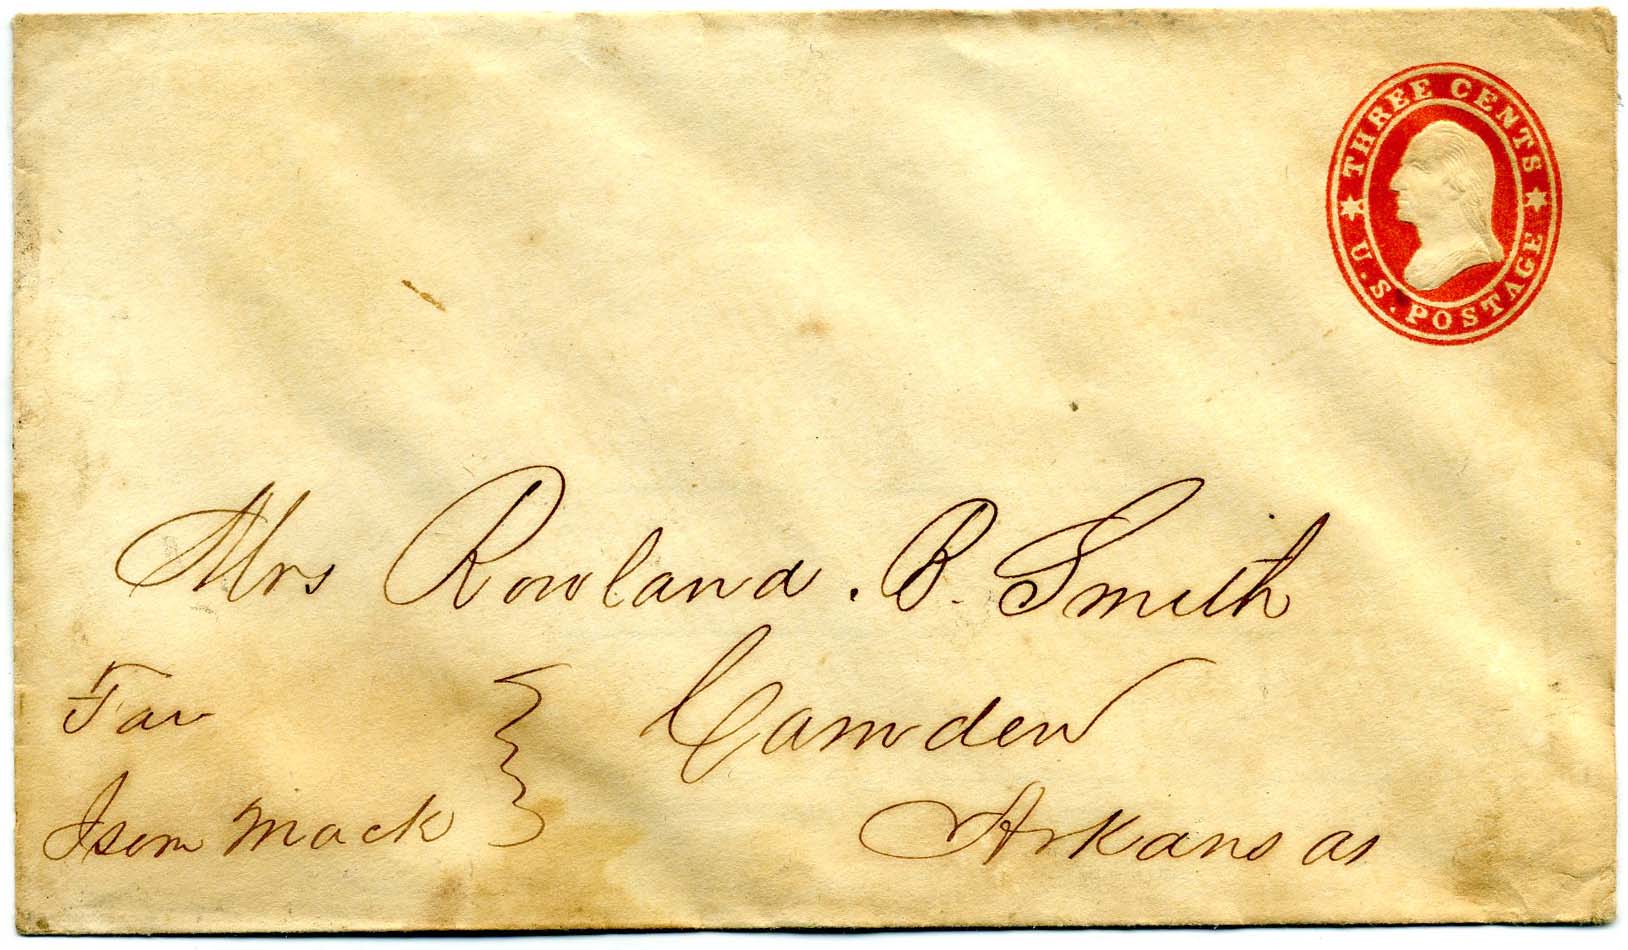 THREE CENTS
U.S. POSTAGE
Mrs Rowland. B. Smith
Camden
Arkansas
Fav
Isom Mack